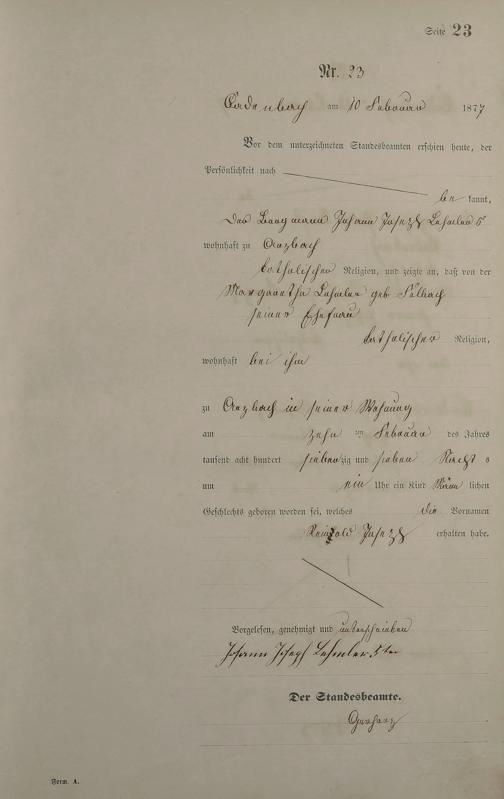 Seite 23
Nr. 23
Cadenbach am 10 Februar 1877
Vor dem unterzeichneten Standesbeamten erschien heute, der
Persönlichkeit nach
be kannt,
der Bergmann Johann Joseph Lehmler 5
wohnhaft zu Arzbach
katholischer Religion, und zeigte an, daß von der
Margaretha Lehmler geb
seiner Ehefrau
katholischer Religion,
wohnhaft bei ihm
zu Arzbach in seiner Wohnung
am zehn ten Februar des Jahres
tausend acht hundert siebenzig und sieben Nacht s
um ein Uhr ein Kind Männ lichen
Geschlechts geboren worden sei, welches die Vornamen
Joseph erhalten habe.
Vorgelesen, genehmigt und unterschrieben
Johann Joseph Lehmler 5ter
Der Standesbeamte.
Gerharz
Form. A.